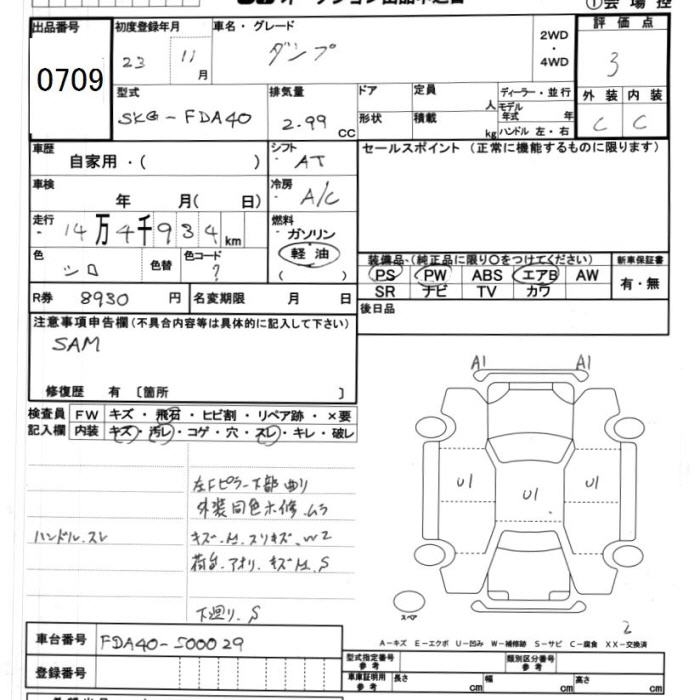 ①会場控
出品番号 0709
初度登録年月 23 11月
車名・グレード ダンプ
2WD・4WD
評価点 3
外装 内装
C C
型式 SKG-FDA40
排気量 2.99 CC
ドア 定員 人
形状 積載 kg
ディーラー・並行
モデル年式 年
ハンドル 左・右
車歴 自家用・( )
シフト AT
セールスポイント(正常に機能するものに限ります)
車検 年 月( 日)
冷房 A/C
走行 14万4千934km
燃料 ガソリン 軽油 ( )
色 シロ 色替 色コード ?
装備品・(純正品に限り○をつけてください)
新車保証書 有・無
PS PW ABS エアB AW
SR ナビ TV カワ
R券 8930 円 名変期限 月 日
後日品
注意事項申告欄(不具合内容等は具体的に記入して下さい)
SAM
修復歴 有 〔箇所 〕
検査員記入欄
FW キズ・飛石・ヒビ割・リペア跡・×要
内装 キズ・汚レ・コゲ・穴・スレ・キレ・破レ
A1 A1
U1 U1 U1
左Fピラー下部曲り
外装同色ホ修.ムラ
ハンドル.スレ
キズ.M.スリキズ.W2
荷台.アオリ.キズM.S
下廻り.S
スペア
2
A-キズ E-エクボ U-凹み W-補修跡 S-サビ C-腐食 XX-交換済
車台番号 FDA40-500029
登録番号
型式指定番号 参考
類別区分番号 参考
車庫証明用 参考 長さ cm 幅 cm 高さ cm